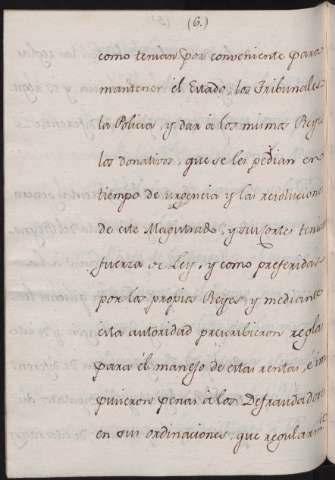 (6.)
como tenian por conveniente para
mantener él Estado, los Tribunales
la Policia, y dar á los mismos Reyes
los donativos, que se les pedian en
tiempo de urgencia y las resoluciones
de este Magistrado, y sus Cortes tenian
fuerza de Ley, y como preferidas
por los propios Reyes y mediante
esta autoridad prescribieron reglas
para él manejo de estas rentas, é im
pusieron penas á los Defraudadores
en sus ordinaciones, que regularm.te